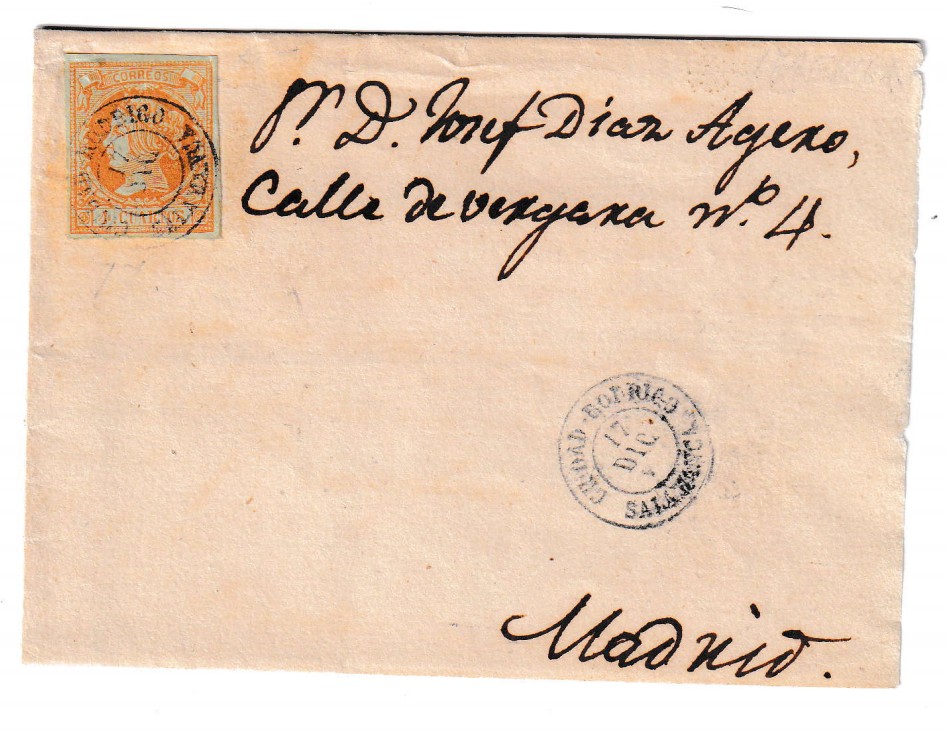 CORREOS
CIUDAD-RODRIGO
SALAMANCA
Sr. D. Josef Dian Agero,
Calle de vergara nº. 4.
CIUDAD-RODRIGO
17
DIC
SALAMANCA
Madrid.